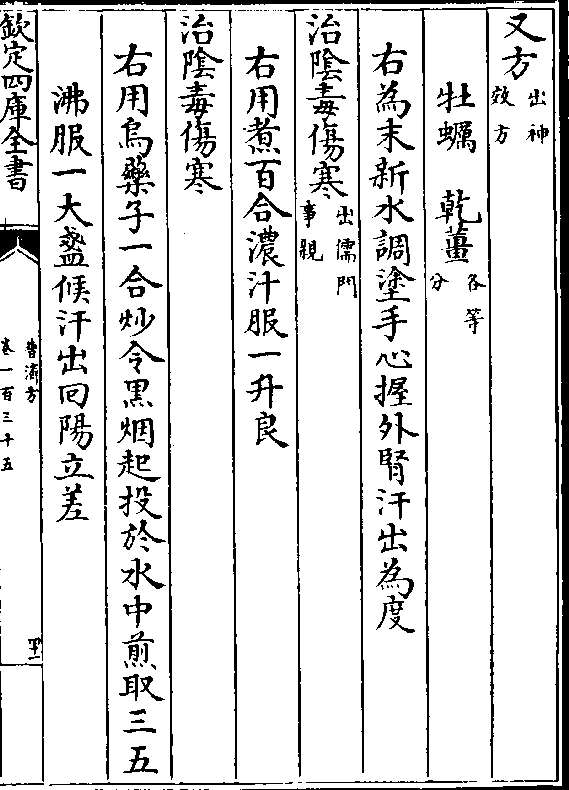 又方出神效方
牡蠣　乾薑各等分
右為末新水調塗手心握外腎汗出為度
治陰毒傷寒出儒門事親
右用煮百合濃汁服一升良
治陰毒傷寒
右用烏藥子一合炒令黑烟起投於水中煎取三五
沸服一大盞候汗出回陽立差
欽定四庫全書
普濟方
卷一百三十五